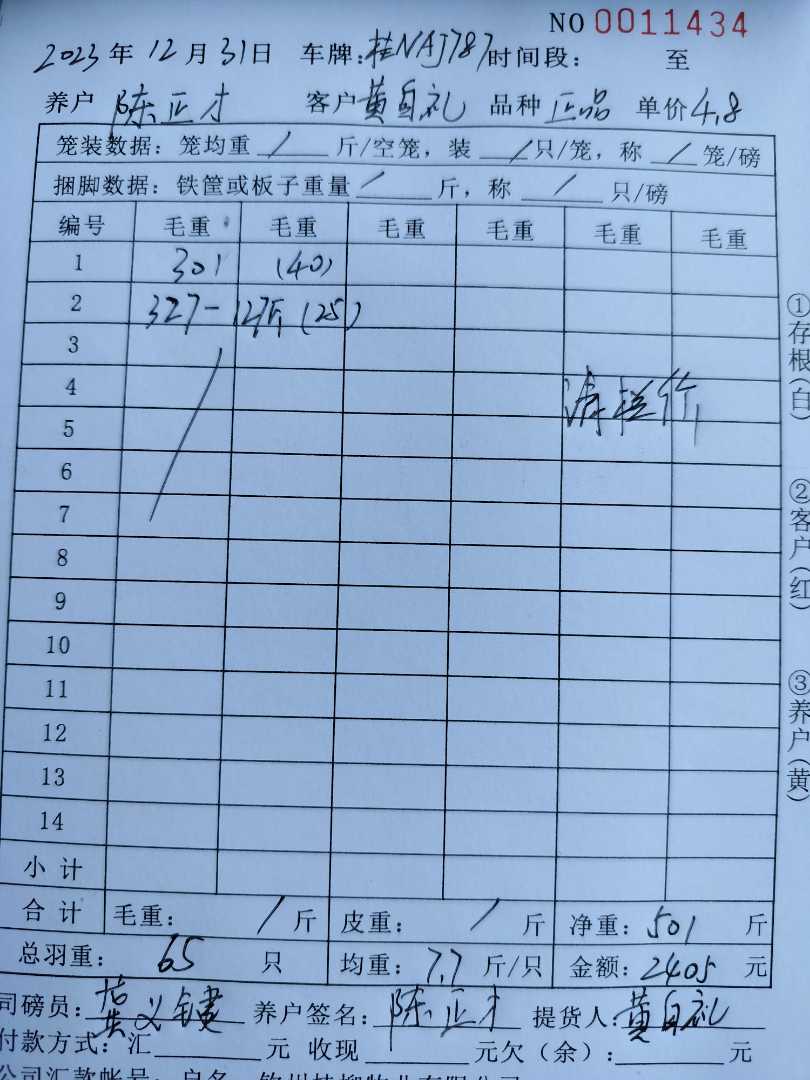 NO 0011434
2023年12月31日 车牌:桂NAJ787时间段: 至
养户 陈正才 客户黄自礼 品种 正品 单价4.8
笼装数据: 笼均重 / 斤/空笼, 装 / 只/笼, 称 / 笼/磅
捆脚数据: 铁筐或板子重量 / 斤, 称 / 只/磅
编号 毛重 毛重 毛重 毛重 毛重 毛重
1 301 (40)
2 327- 127斤 (25)
3
4
5
6
7
8
9
10
11
12
13
14
小计
合计 毛重: / 斤 皮重: / 斤 净重: 501 斤
总羽重: 65 只 均重: 7.7 斤/只 金额: 2405 元
司磅员: 黄义键 养户签名: 陈正才 提货人: 黄自礼
付款方式: 汇 元 收现 元欠(余): 元
公司汇款帐号: 户名:
①存根(白)
②客户(红)
③养户(黄)